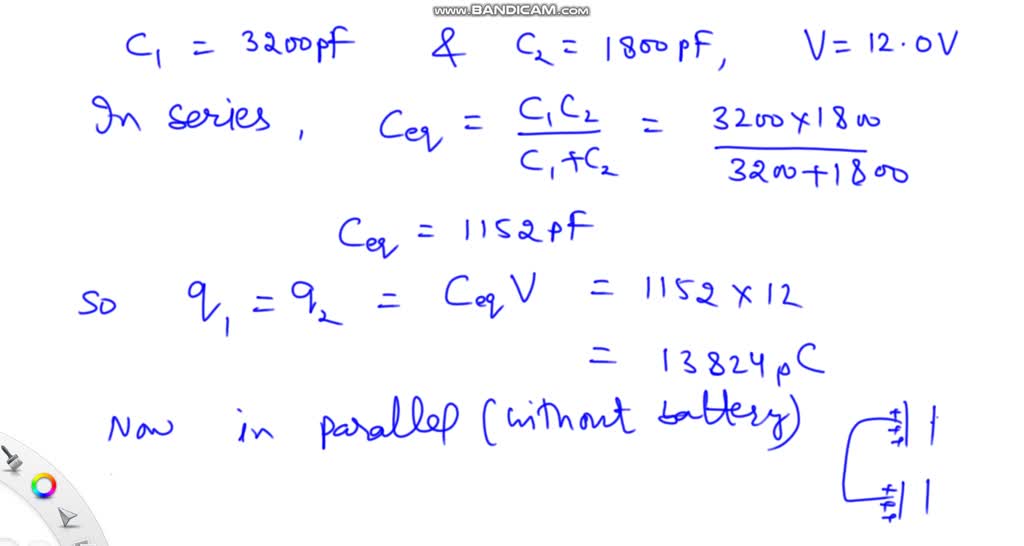 www.BANDICAM.com
C₁ = 3200pf & C₂ = 1800pF, V = 12.0V
In series, Ceq = C₁C₂ / C₁+C₂ = 3200×1800 / 3200+1800
Ceq = 1152pF
So q₁ = q₂ = CeqV = 1152 × 12
= 13824pC
Now in parallel (without battery)